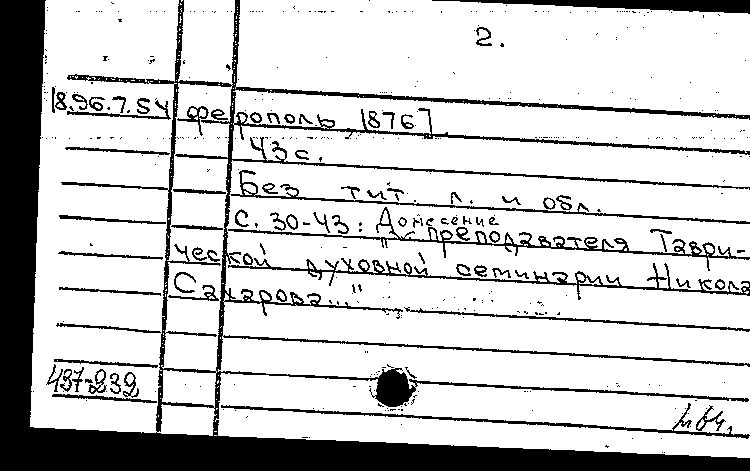 2.
18.96.7.54 ферополь, 1876]
43 с.
Без тит. л. и обл.
с. 30-43: Донесение
" преподавателя Таври-
ческой духовной семинарии Никола
Сахарова..."
437-232